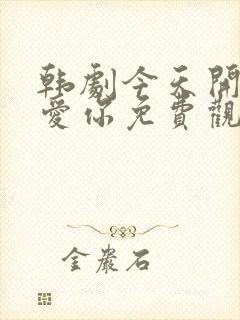 韩劇今天開
愛你免費觀
金巖石